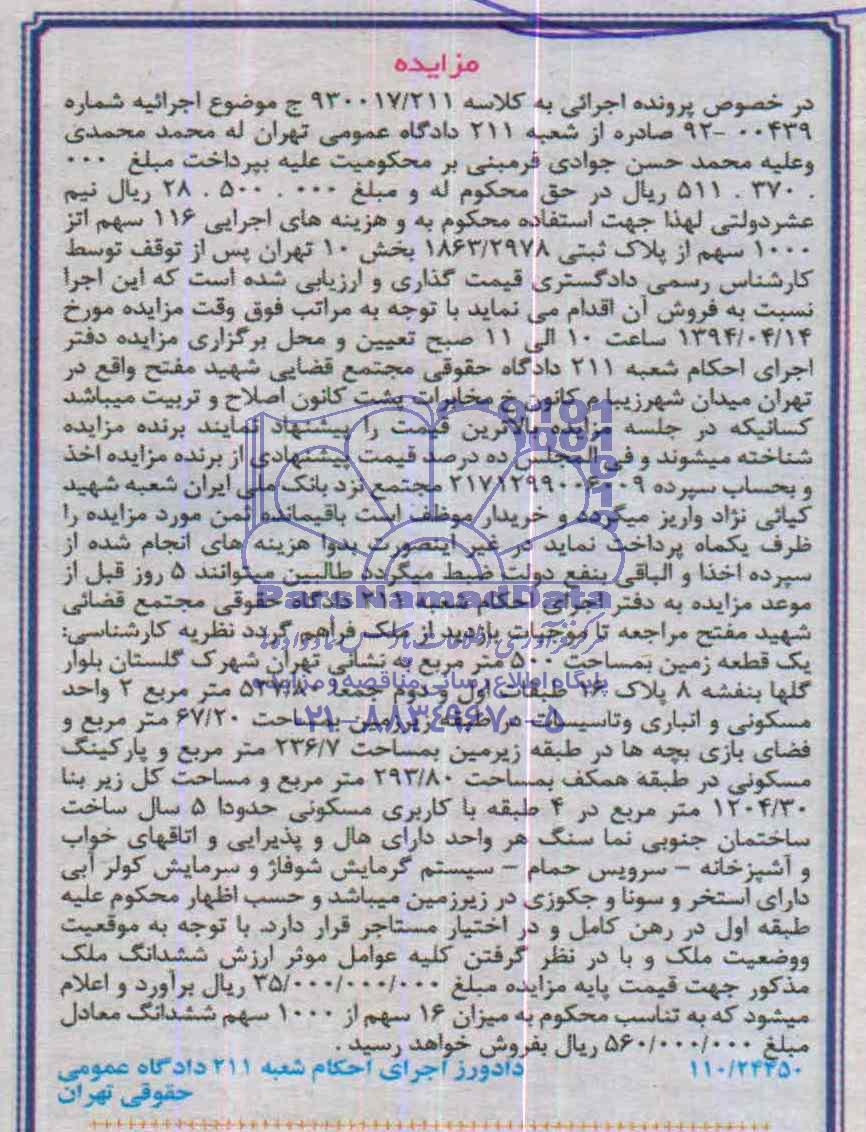 مزایده
در خصوص پرونده اجرائی به کلاسه ۹۳۰۰۱۷/۲۱۱ ج موضوع اجرائیه شماره
۹۲-۰۰۴۳۹ صادره از شعبه ۲۱۱ دادگاه عمومی تهران له محمد محمدی
وعلیه محمد حسن جوادی فرمبنی بر محکومیت علیه بپرداخت مبلغ ۰۰۰
. ۳۷۰ . ۵۱۱ ریال در حق محکوم له و مبلغ ۰۰۰ . ۵۰۰ . ۲۸ ریال نیم
عشردولتی لهذا جهت استفاده محکوم به و هزینه های اجرایی ۱۱۶ سهم اتز
۱۰۰۰ سهم از پلاک ثبتی ۱۸۶۳/۲۹۷۸ بخش ۱۰ تهران پس از توقف توسط
کارشناس رسمی دادگستری قیمت گذاری و ارزیابی شده است که این اجرا
نسبت به فروش آن اقدام می نماید با توجه به مراتب فوق وقت مزایده مورخ
۱۳۹۴/۰۴/۱۴ ساعت ۱۰ الی ۱۱ صبح تعیین و محل برگزاری مزایده دفتر
اجرای احکام شعبه ۲۱۱ دادگاه حقوقی مجتمع قضایی شهید مفتح واقع در
تهران میدان شهرزیبا م کانون خ مخابرات پشت کانون اصلاح و تربیت میباشد
کسانیکه در جلسه مزایده بالاترین قیمت را پیشنهاد نمایند برنده مزایده
شناخته میشوند و فی المجلس ده درصد قیمت پیشنهادی از برنده مزایده اخذ
و بحساب سپرده ۲۱۷۱۲۹۹۰۰۶۰۰۹ مجتمع نزد بانک ملی ایران شعبه شهید
کیائی نژاد واریز میگردد و خریدار موظف است باقیمانده ثمن مورد مزایده را
ظرف یکماه پرداخت نماید در غیر اینصورت بدوا هزینه های انجام شده از
سپرده اخذا و الباقی بنفع دولت ضبط میگردد طالبین میتوانند ۵ روز قبل از
موعد مزایده به دفتر اجرای احکام شعبه ۲۱۱ دادگاه حقوقی مجتمع قضائی
شهید مفتح مراجعه تا موجبات بازدید از ملک فراهم گردد نظریه کارشناسی:
یک قطعه زمین بمساحت ۵۰۰ متر مربع به نشانی تهران شهرک گلستان بلوار
گلها بنفشه ۸ پلاک ۲۶ طبقات اول ودوم جمعا ۵۲۷/۸۰ متر مربع ۲ واحد
مسکونی و انباری وتاسیسات در طبقه زیرزمین بمساحت ۶۷/۲۰ متر مربع و
فضای بازی بچه ها در طبقه زیرزمین بمساحت ۲۳۶/۷ متر مربع و پارکینگ
مسکونی در طبقه همکف بمساحت ۲۹۳/۸۰ متر مربع و مساحت کل زیر بنا
۱۲۰۴/۳۰ متر مربع در ۴ طبقه با کاربری مسکونی حدودا ۵ سال ساخت
ساختمان جنوبی نما سنگ هر واحد دارای هال و پذیرایی و اتاقهای خواب
و آشپزخانه - سرویس حمام - سیستم گرمایش شوفاژ و سرمایش کولر آبی
دارای استخر و سونا و جکوزی در زیرزمین میباشد و حسب اظهار محکوم علیه
طبقه اول در رهن کامل و در اختیار مستاجر قرار دارد. با توجه به موقعیت
ووضعیت ملک و با در نظر گرفتن کلیه عوامل موثر ارزش ششدانگ ملک
مذکور جهت قیمت پایه مزایده مبلغ ۳۵/۰۰۰/۰۰۰/۰۰۰ ریال برآورد و اعلام
میشود که به تناسب محکوم به میزان ۱۶ سهم از ۱۰۰۰ سهم ششدانگ معادل
مبلغ ۵۶۰/۰۰۰/۰۰۰ ریال بفروش خواهد رسید .
۱۱۰/۲۴۴۵۰ دادورز اجرای احکام شعبه ۲۱۱ دادگاه عمومی
حقوقی تهران
ParsNamadData
پایگاه اطلاع رسانی مناقصه و مزایده
۰۲۱-۸۸۳۴۹۶۷۰-۵